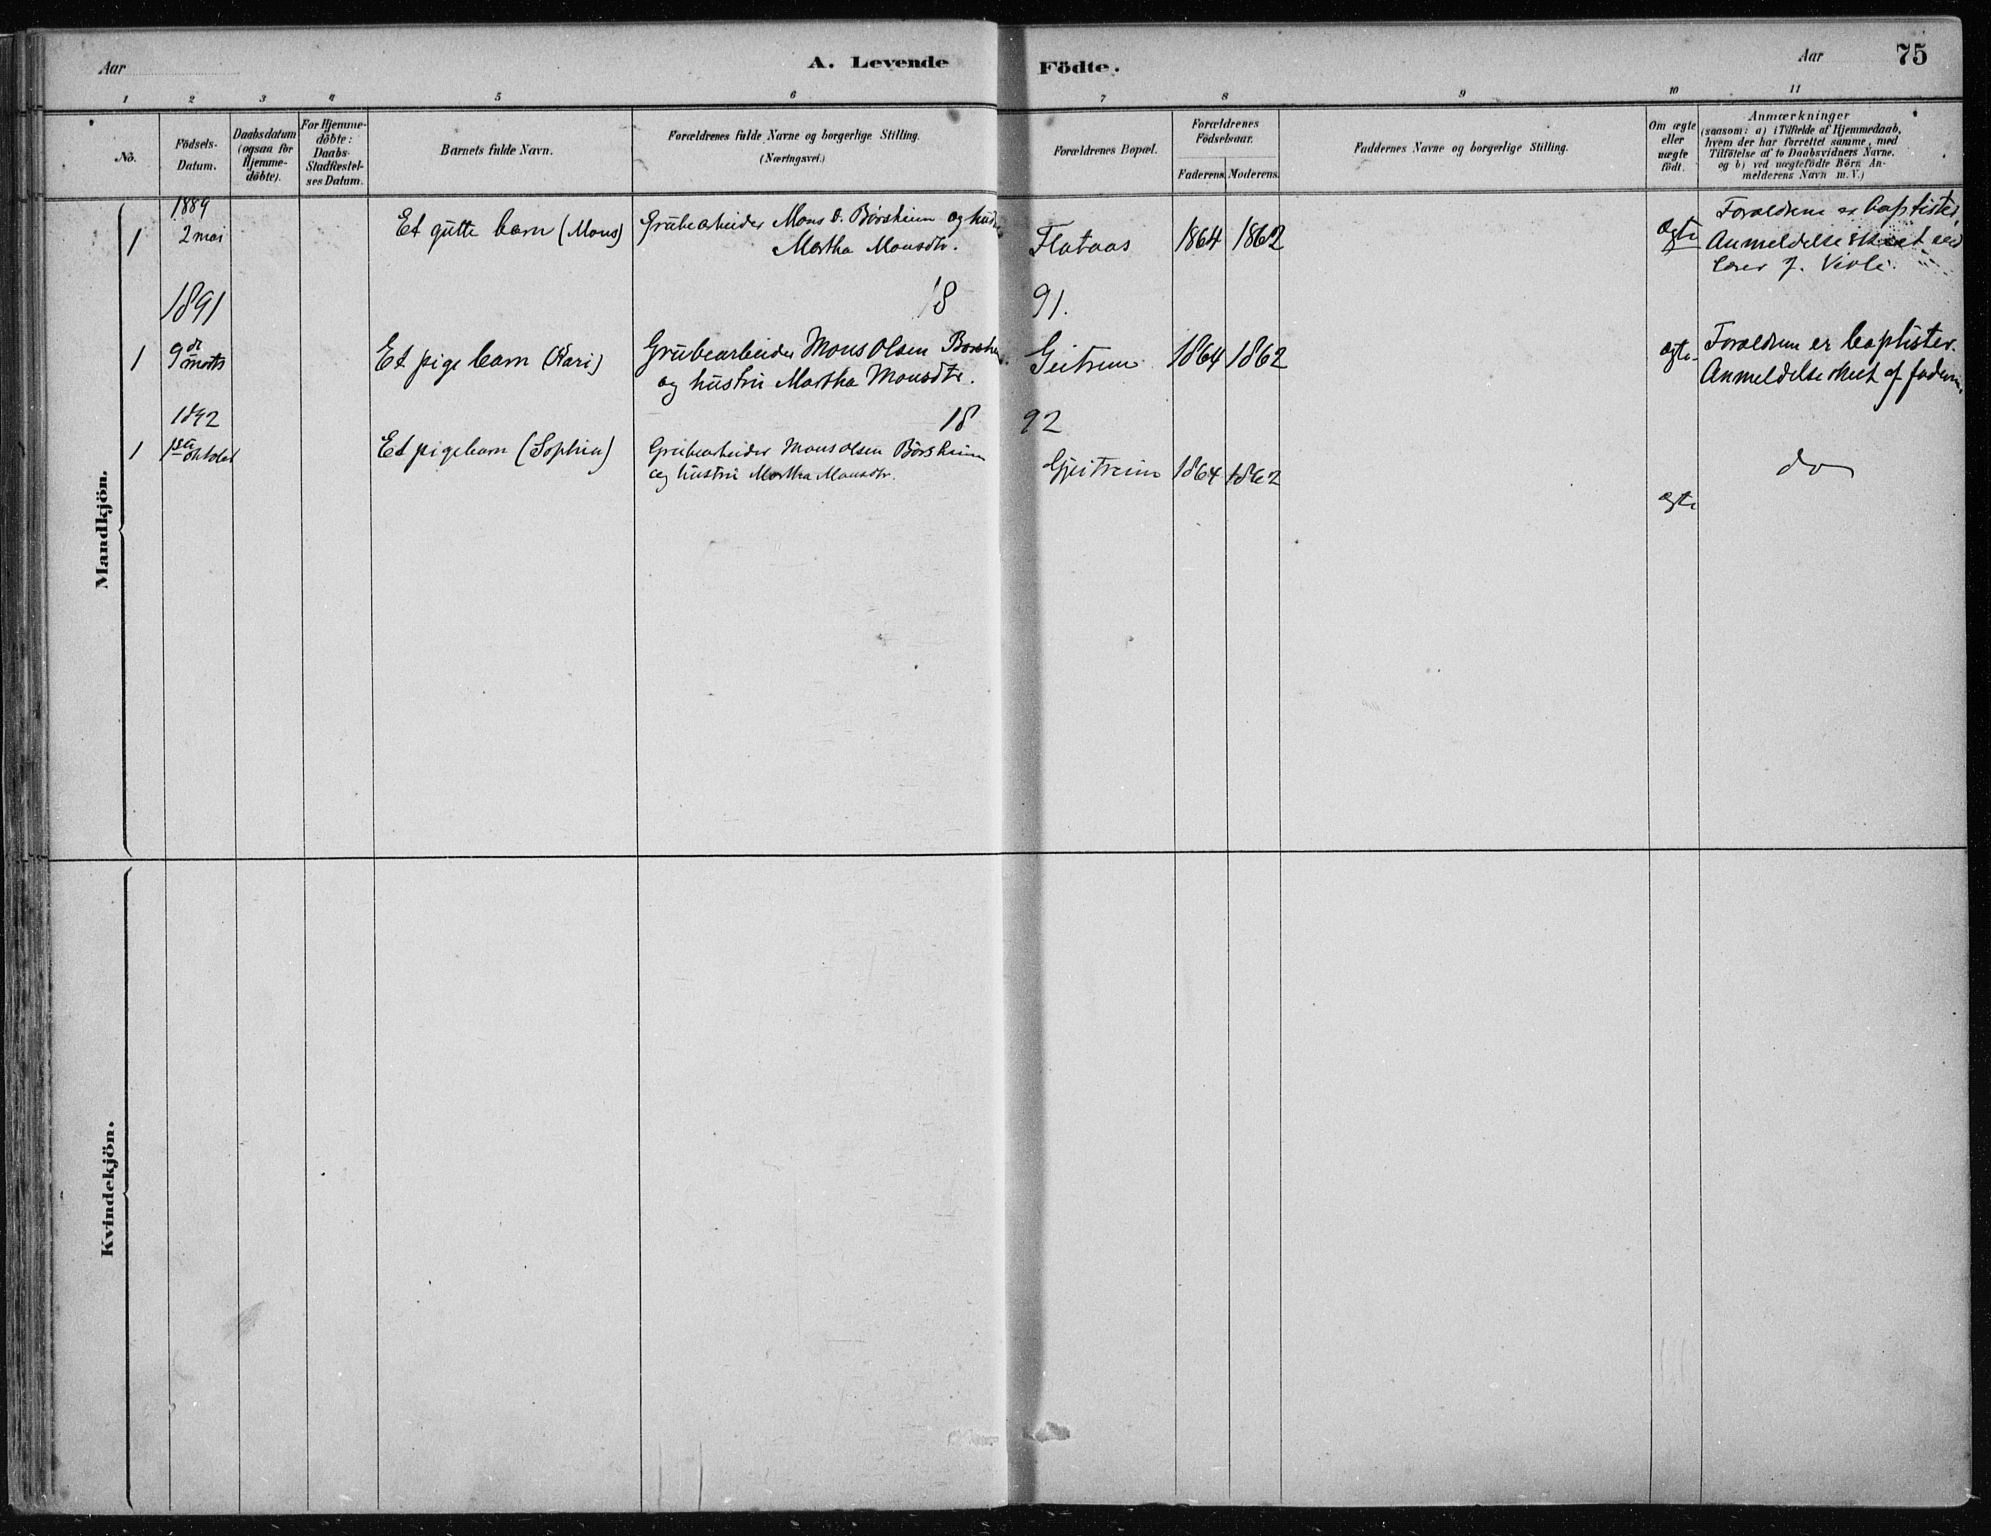 Aar
A. Levende Födte.
Aar
75
1 2 3 4 5 6 7 8 9 10 11
No.
Födsels-
Datum.
Daabsdatum
(ogsaa for
Hjemme-
döbte).
For Hjemme-
döbte:
Daabs-
Stadfæstel-
ses Datum.
Barnets fulde Navn.
Forældrenes fulde Navne og borgerlige Stilling.
(Næringsvei.)
Forældrenes Bopæl.
Forældrenes
Födselsaar.
Faderens. Moderens.
Faddernes Navne og borgerlige Stilling.
Om ægte
eller
uægte
födt.
Anmærkninger
(saasom: a) i Tilfælde af Hjemmedaab,
hvem der har forrettet samme, med
Tilföielse af to Daabsvidners Navne.
og b) ved uægtefödte Börn An-
melderens Navn m. V.)
Mandkjön.
1889
1 2 mai Et gutte barn (Mons) Grubearbeider Mons O. Børsheim og hustru
Martha Monsdtr. Flataas 1864 1862 ægte
Forældrene er baptister,
Anmeldelse skeet ved
lærer J.
1891 18 91.
1 9de marts Et pige barn (Kari) Grubearbeider Mons Olsen Børsheim
og hustru Martha Monsdtr. Geitrem 1864 1862 ægte
Forældrene er baptister.
Anmeldelse skeet af faderen.
1892 18 92
1 1ste oktober Et pigebarn (Sophia) Grubearbeider Mons Olsen Børsheim
og hustru Martha Monsdtr. Gjeitreim 1864 1862 ægte
do
Kvindekjön.